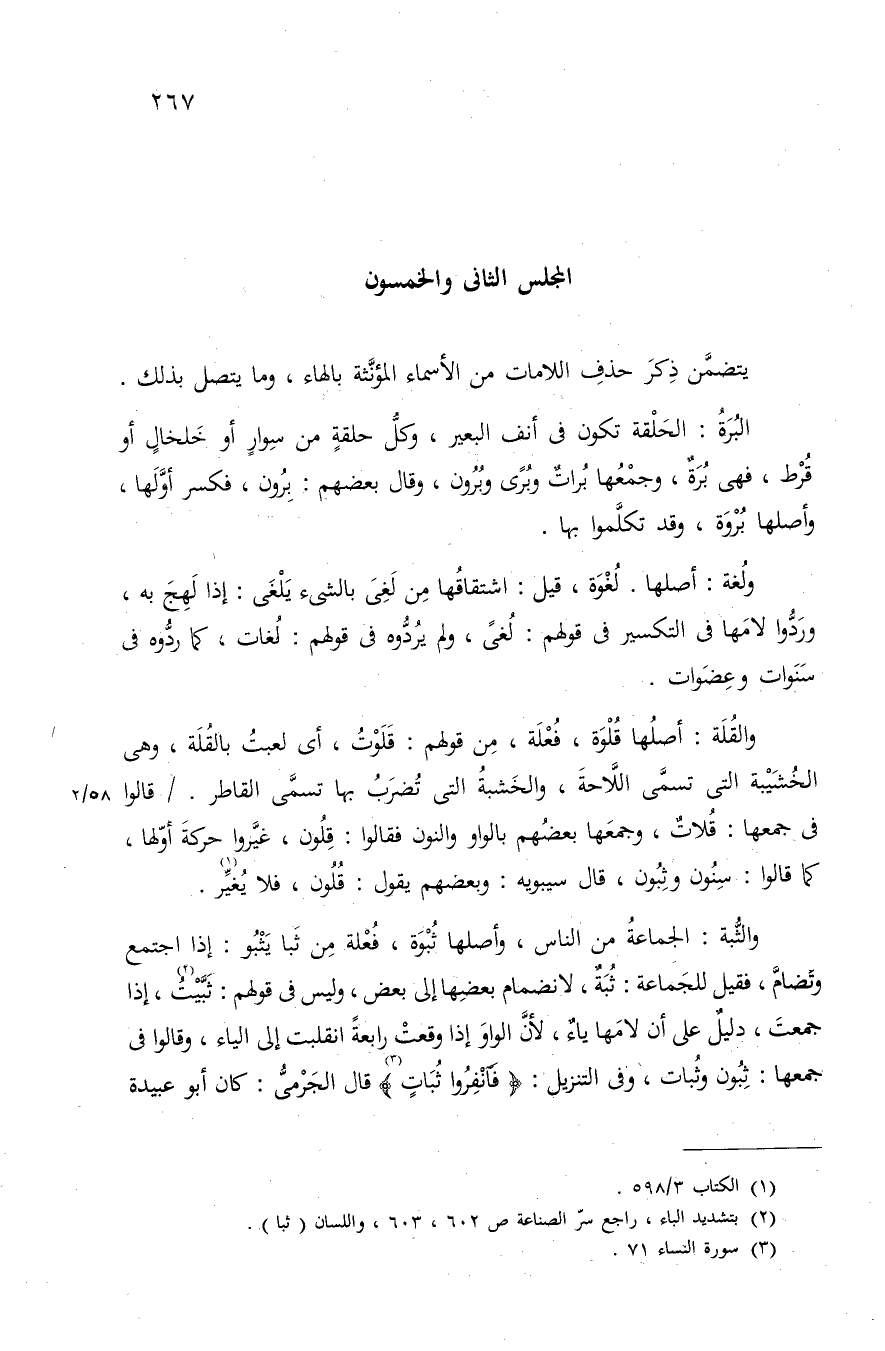 ٢٦٧
المجلس الثانى والخمسون
يتضمَّن ذِكرَ حذفِ اللامات من الأسماء المؤنَّثة بالهاء ، وما يتصل بذلك .
البُرَةُ : الحَلْقة تكون فى أنف البعير ، وكلُّ حلقةٍ من سِوارٍ أو خَلخالٍ أو
قُرْط ، فهى بُرَةٌ ، وجمْعُها بُراتٌ وبُرًى وبُرُون ، وقال بعضهم : بِرُون ، فكسر أوَّلَها ،
وأصلها بُرْوَة ، وقد تكلَّموا بها .
ولُغة : أصلها . لُغْوَة ، قيل : اشتقاقُها مِن لَغِىَ بالشىء يَلْغَى : إذا لَهِجَ به ،
ورَدُّوا لامَها فى التكسير فى قولهم : لُغىً ، ولم يرُدُّوه فى قولهم : لُغات ، كما ردُّوه فى
سَنَوات وعِضَوات .
والقُلَة : أصلُها قُلْوَة ، فُعْلَة ، مِن قولهم : قَلَوْتُ ، أى لعبتُ بالقُلَة ، وهى
الخُشَيْبة التى تسمَّى اللَّاحةَ ، والخَشبةُ التى تُضرَبُ بها تسمَّى القاطر . / قالوا ٢/٥٨
فى جمعها : قُلاتٌ ، وجمعَها بعضُهم بالواو والنون فقالوا : قِلُون ، غيَّروا حركةَ أوّلها ،
كما قالوا : سِنُون وثِبُون ، قال سيبويه : وبعضهم يقول : قُلُون ، فلا يُغيِّر (١) .
والثُّبة : الجماعةُ من الناس ، وأصلها ثُبْوَة ، فُعْلة مِن ثَبا يَثْبُو : إذا اجتمع
وتَضامَّ ، فقيل للجَماعة : ثُبَةٌ ، لانضمام بعضِها إلى بعض ، وليس فى قولهم : ثَبَّيْتُ (٢) ، إذا
جمعتَ ، دليلٌ على أن لامَها ياءٌ ، لأنَّ الواوَ إذا وقعتْ رابعةً انقلبت إلى الياء ، وقالوا فى
جمعها : ثِبُون وثُبات ، وفى التنزيل : ﴿ فَٱنْفِرُوا ثُبَاتٍ (٣) ﴾ قال الجَرْمىُّ : كان أبو عبيدة
(١) الكتاب ٥٩٨/٣ .
(٢) بتشديد الباء ، راجع سرّ الصناعة ص ٦٠٢ ، ٦٠٣ ، واللسان ( ثبا ) .
(٣) سورة النساء ٧١ .